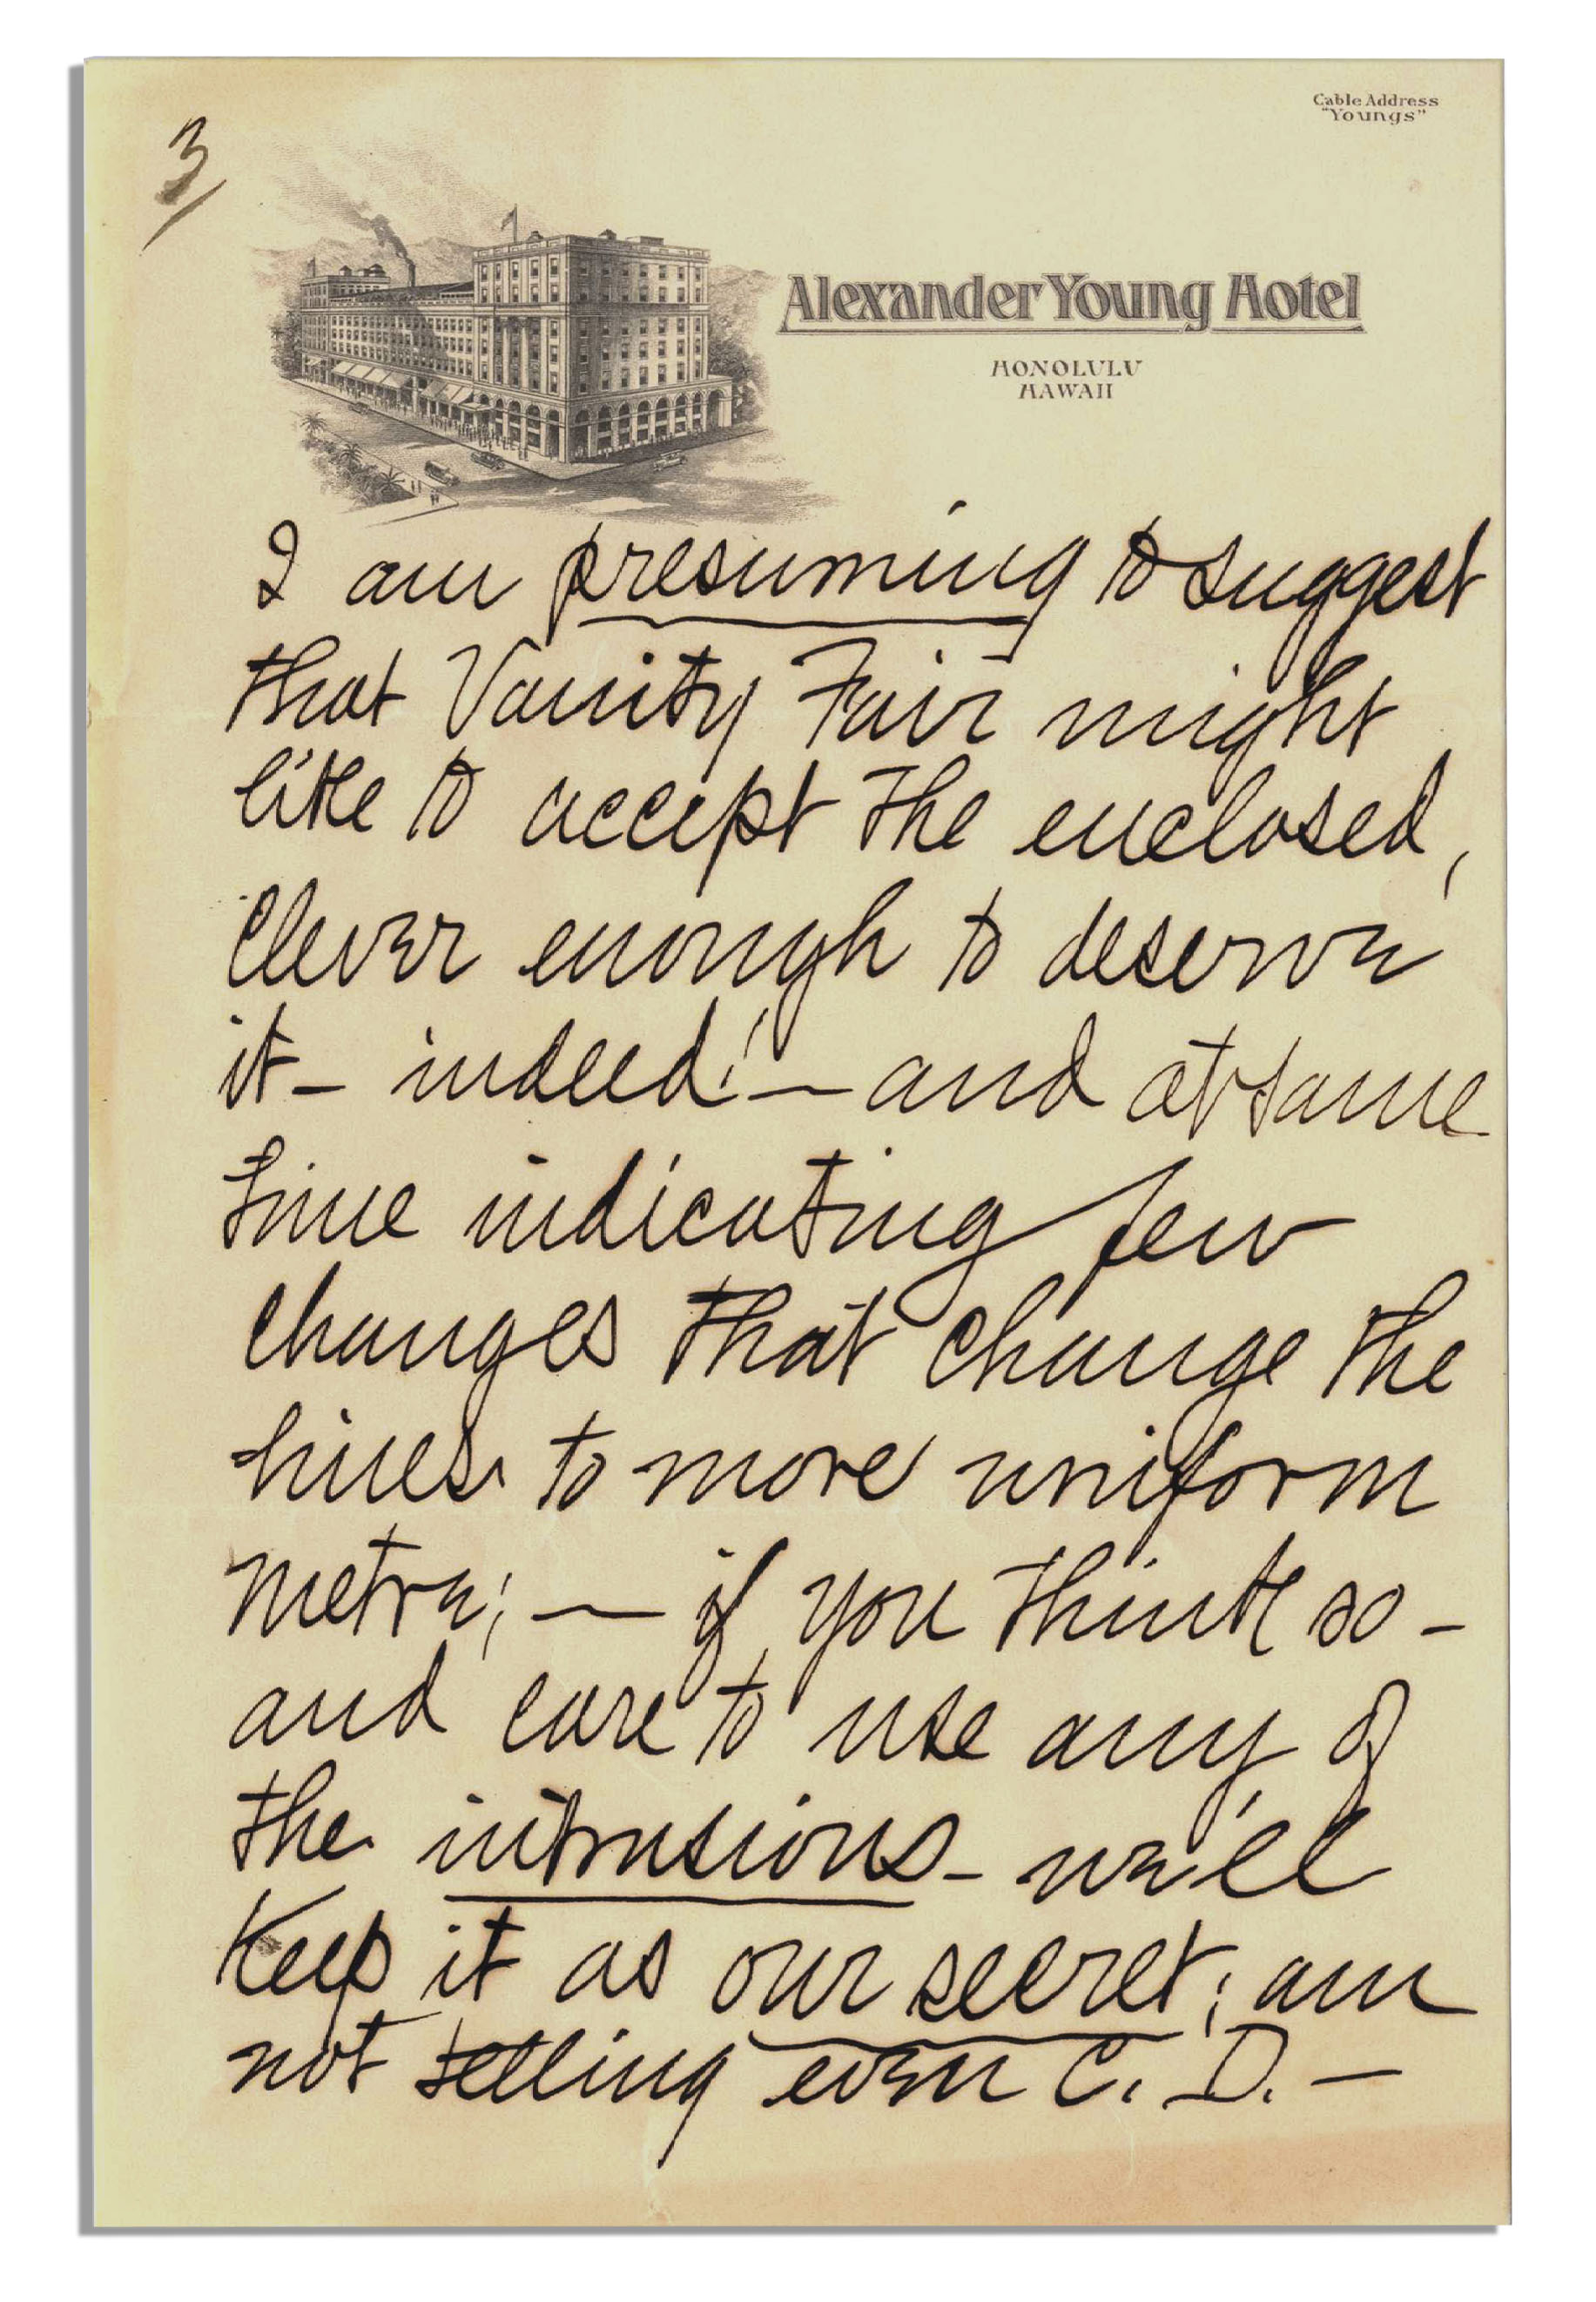 Cable Address
"Youngs"
3/
Alexander Young Hotel
HONOLULU
HAWAII
I am presuming to suggest
that Vanity Fair might
like to accept the enclosed,
clever enough to deserve
it – indeed! — and at same
time indicating few
changes that change the
lines to more uniform
metre; — if you think so –
and care to use any of
the intrusions – we'll
keep it as our secret; am
not telling even C. D. —